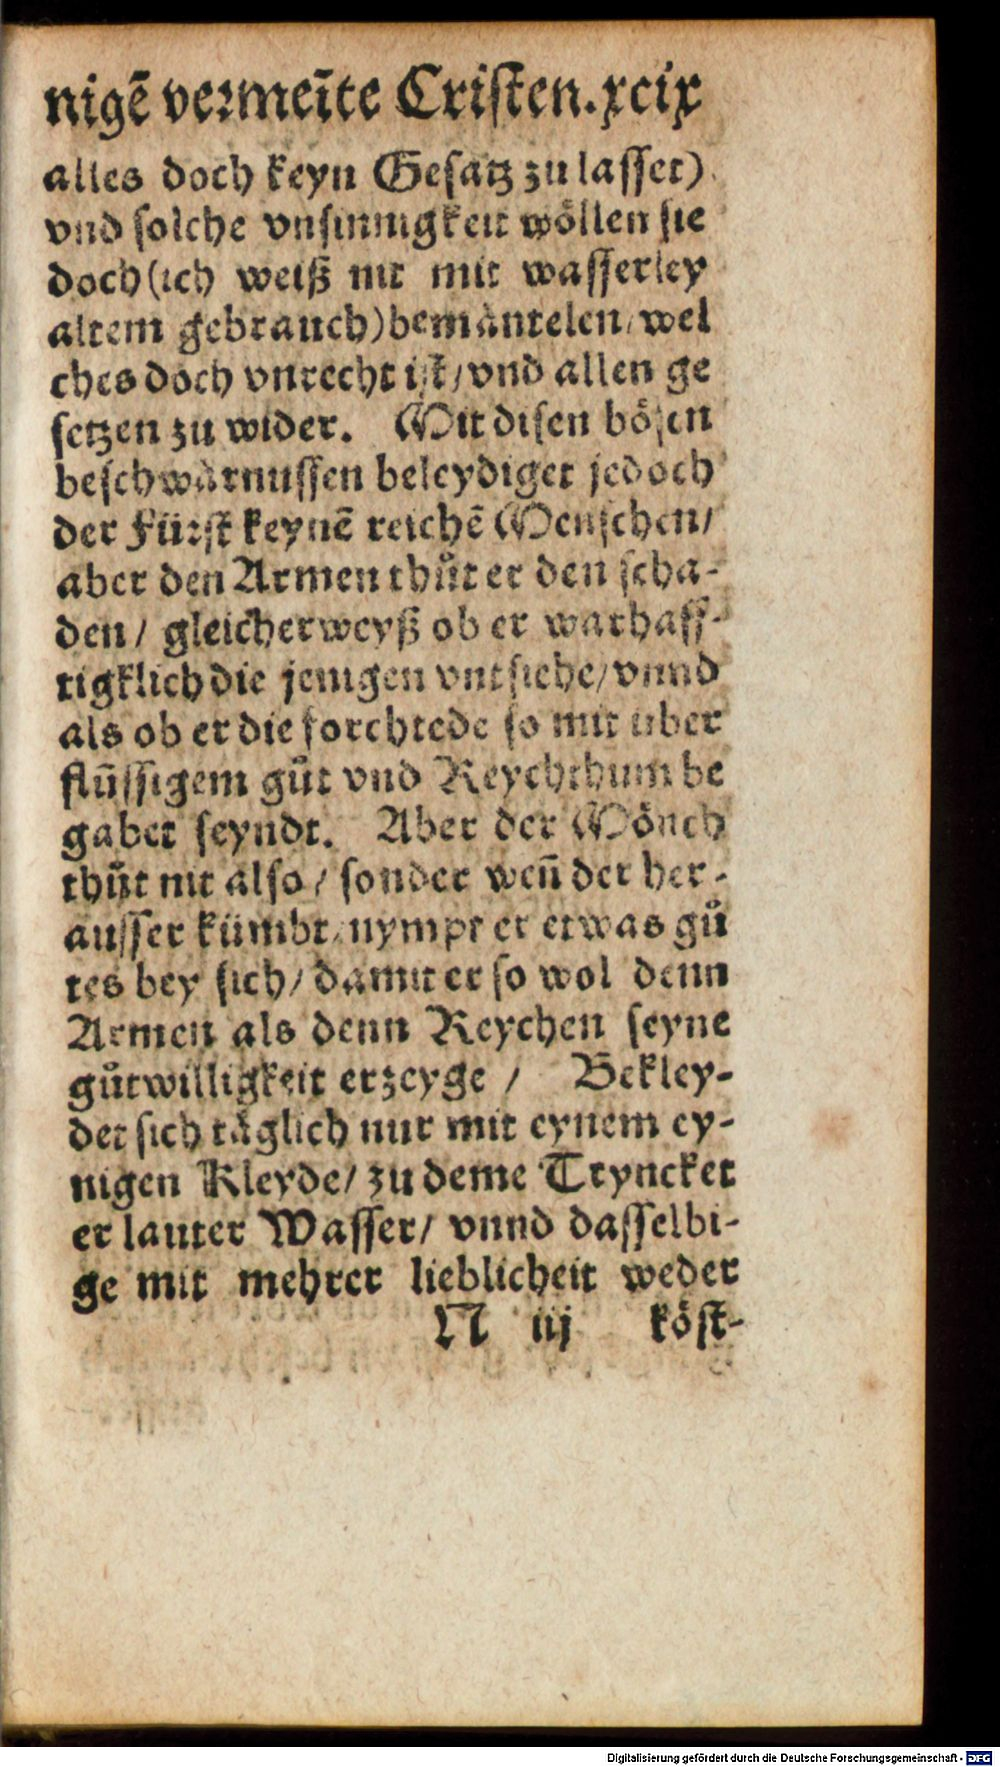 nigē vermeīte Cristen. xcix
alles doch keyn Gesatz zu lasset)
vnd solche vnsinnigkeit wöllen sie
doch (ich weiß nit mit wasserley
altem gebrauch) bemäntelen / wel
ches doch vnrecht ist / vnd allen ge
setzen zu wider. Mit disen bösen
beschwärnussen beleydiget jedoch
der Fürst keynē reichē Menschen /
aber den Armen thůt er den scha-
den / gleicher weyß ob er warhaff-
tigklich die jenigen vntsiehe / vnnd
als ob er die forchtede so mit uber
flüssigem gůt vnd Reychthum be
gabet seyndt. Aber der Mönch
thůt nit also / sonder weñ der her-
ausser kümbt / nympt er etwas gů
tes bey sich / damit er so wol denn
Armen als denn Reychen seyne
gůtwilligkeit erzeyge / Bekley-
det sich täglich nur mit eynem ey-
nigen Kleyde / zu deme Tryncket
er lauter Wasser / vnnd dasselbi-
ge mit mehrer lieblicheit weder
N iij köst-
Digitalisierung gefördert durch die Deutsche Forschungsgemeinschaft - DFG